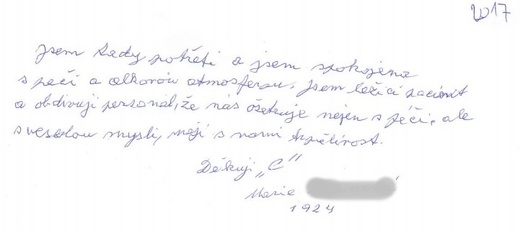 2017
jsem tady potřetí a jsem spokojena
s péčí a celkovou atmosferou. jsem ležící pacient
a obdivuji personál, že nás ošetřuje nejen s péčí, ale
s veselou myslí, mají s námi trpělivost.
Děkuji „C"
Marie
1924